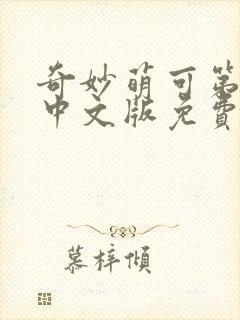 奇妙萌可第
中文版免费
慕梓倾